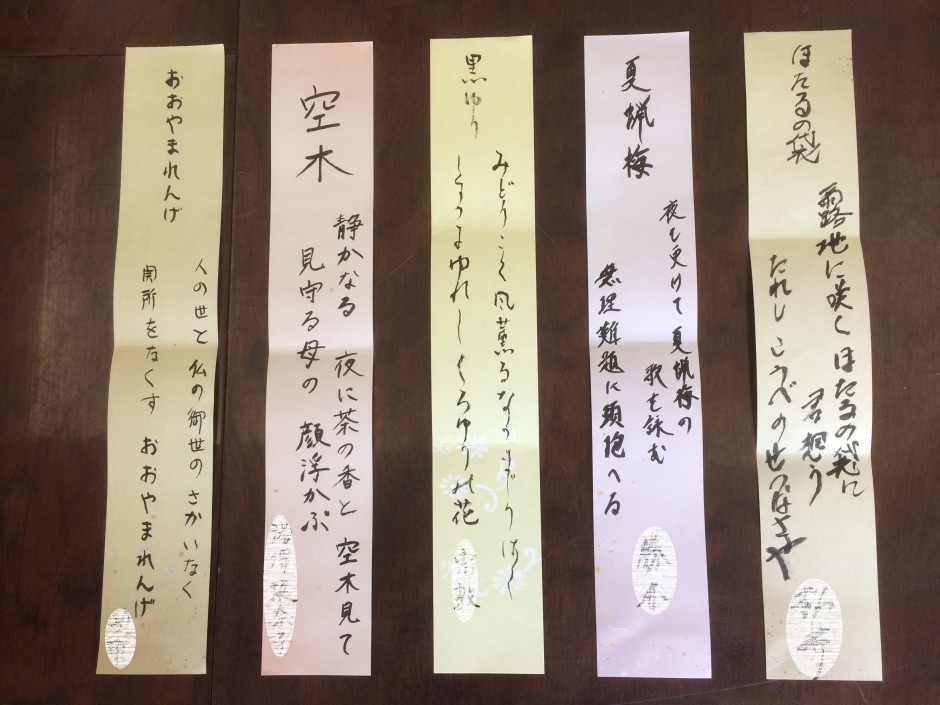 ほたるの袋
露地に咲く ほたるの袋に
君想う
たれしこうべの せつなさや
夏蝋梅
夜も更けて 夏蝋梅の
歌を詠む
無理難題に頭抱へる
黒ゆり
みどりこく風薫るなか
ゆれしくろゆり花
空木
静かなる 夜に茶の香と 空木見て
見守る母の 顔浮かぶ
おおやまれんげ
人の世と 仏の御世の さかいなく
関所をなくす おおやまれんげ